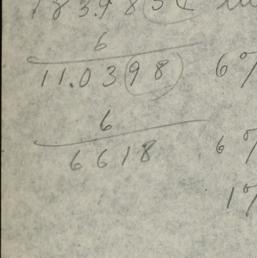 183.983
6
11.0398 6%
6
6618 6%
1%